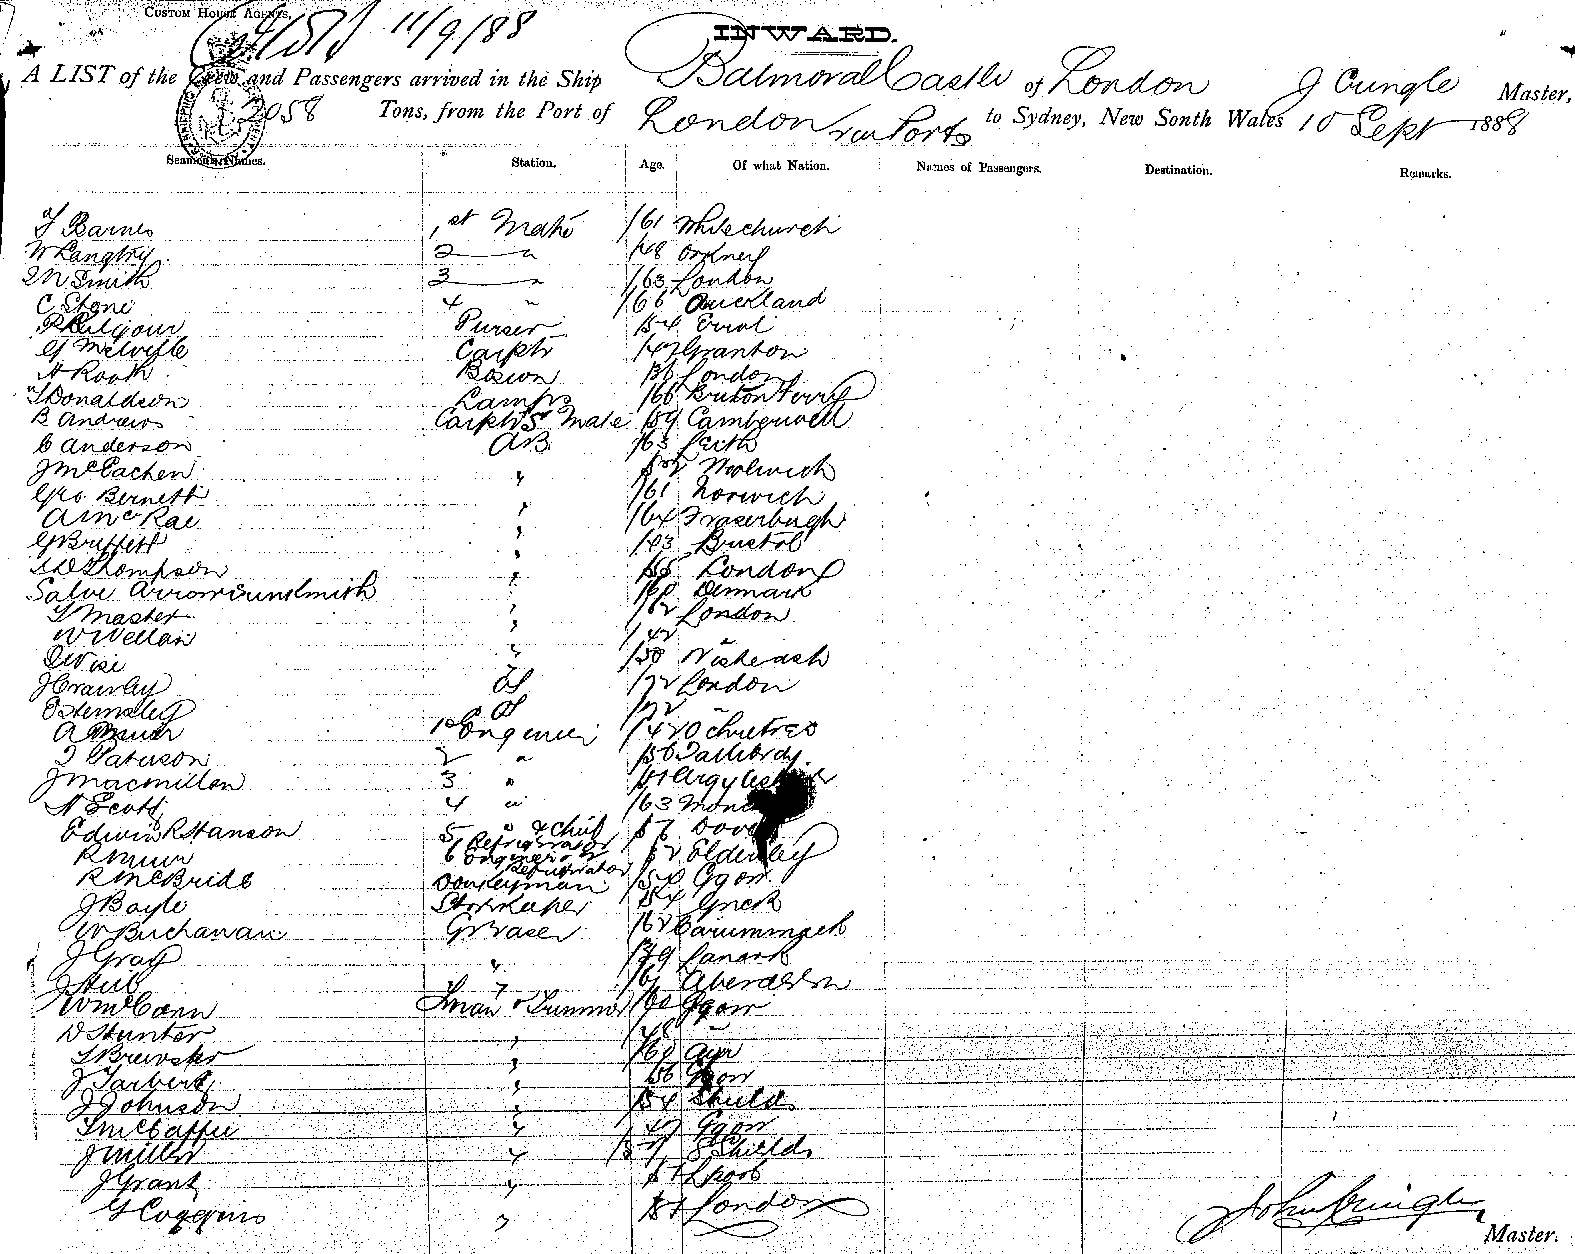 CUSTOM HOUSE AGENTS,
11/9/88
INWARD.
A LIST of the Crew and Passengers arrived in the Ship Balmoral Castle of London J Cringle Master,
2058 Tons, from the Port of London via Ports to Sydney, New South Wales 10 Sept 1888
Seamen's Names. Station. Age. Of what Nation. Names of Passengers. Destination. Remarks.
T Barnes 1st Mate /61 Whitechurch
W Langtry 2 " /48 Orkney
Smith 3 " /63 London
C Stone 4 " /66 Auckland
P Kilgour Purser /54 Errol
G Melville Carptr /47 Granton
A Rooth Bosun /36 London
T Donaldson Lamps /66 Briton Ferry
B Andrews Carptrs Mate /59 Camberwell
C Anderson AB /63 Leith
J McEachen " Woolwich
Geo Bernett " /61 Norwich
A McRae " /64 Fraserburgh
G Briffett " /43 Bristol
Thompson " London
Salve " /60 Denmark
T Master " /62 London
W Wellan " /42 "
Wise " /50 Wisbeach
J Crawley OS /72 London
OS /72 "
A Muir 1st Engineer /42
Paterson 2 " /56
J Macmillan 3 " /61
N Scott 4 " /63
Edwin R Hanson 5 " & Chief Refrigerator /57 Dover
R Muir 6 Engineer & Refrigerator /62 Eldersley
R McBride Donkeyman /54 Ggow
J Boyle Storekeeper /54 Gnock
W Buchanan Greaser /62
J Gray " /39 Lanark
" /61 Aberdeen
W McCann Fman & Trimmer /60 Ggow
D Hunter " /48 "
T Brewster " /62 Ayr
J Tarbert " /56 Ggow
J Johnson " /54 Shields
T McCaffie " /47 Ggow
J Miller " S Shields
J Grant " Lpool
G Coggins " London
John Cringle
Master.